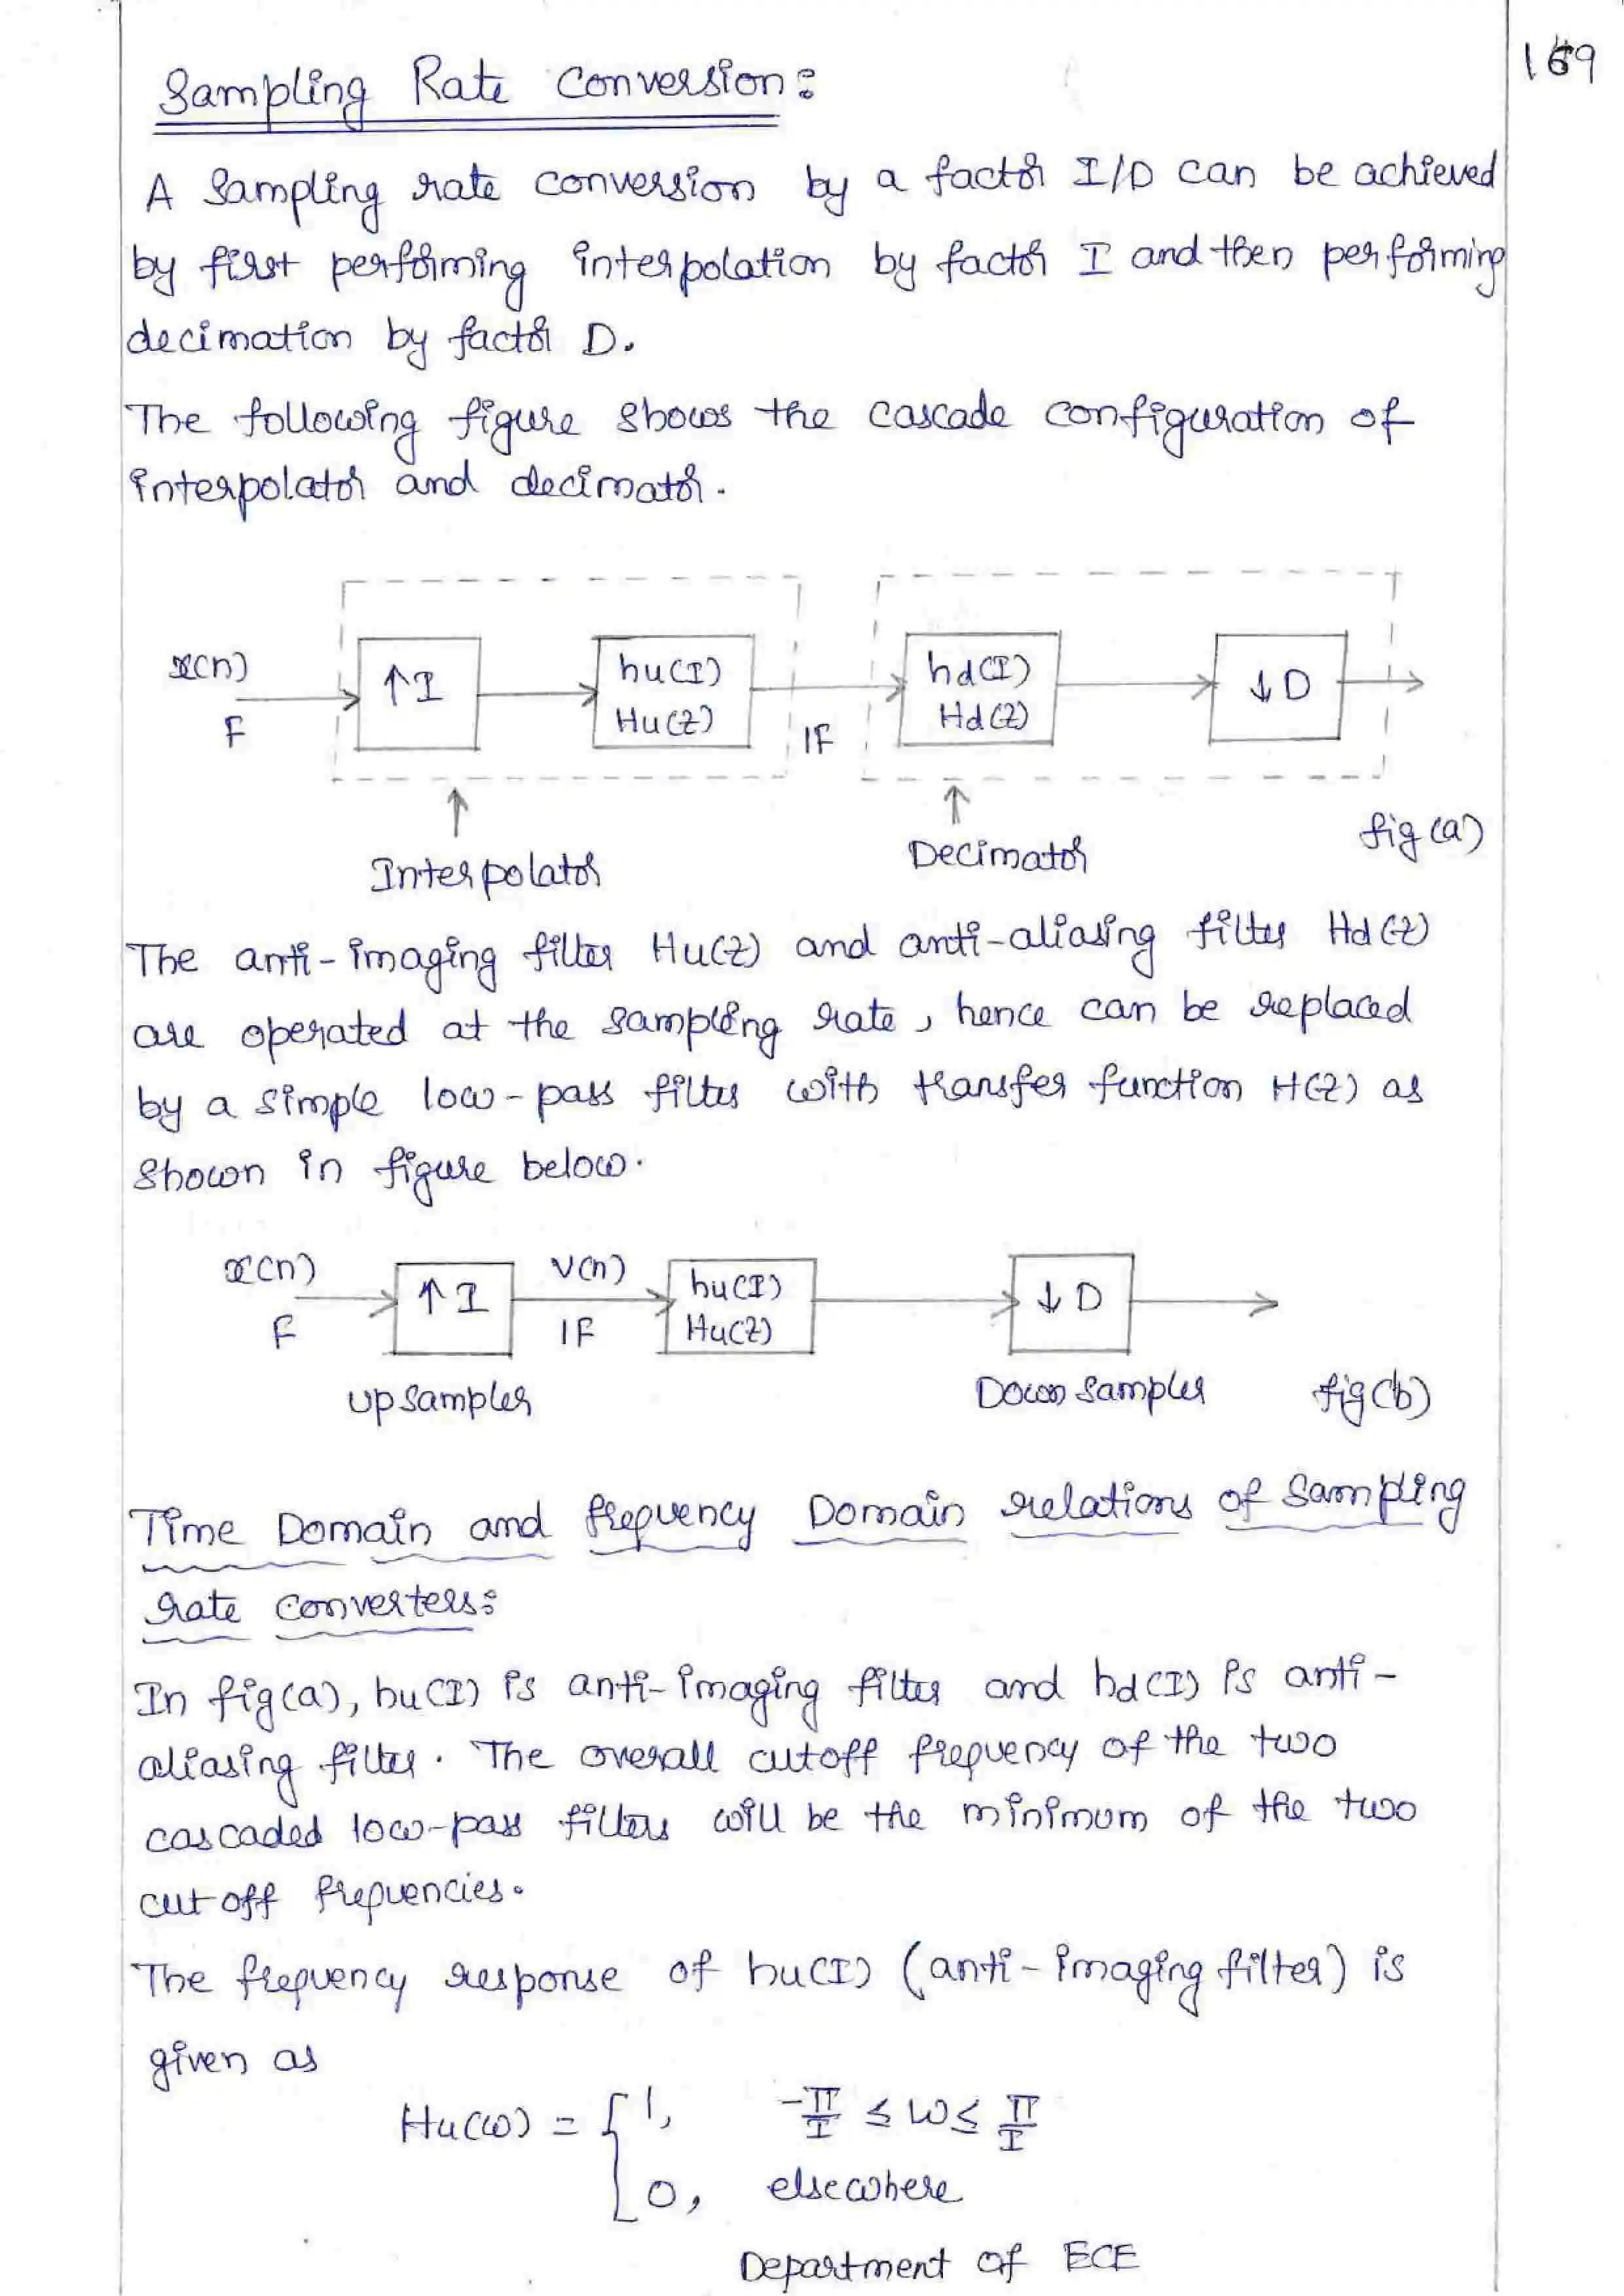 169
Sampling Rate Conversion:
A Sampling rate conversion by a factor I/D can be achieved
by first performing interpolation by factor I and then performing
decimation by factor D.
The following figure shows the cascade configuration of
interpolator and decimator.
x(n)
F
↑I
hu(I)
Hu(Z)
IF
hd(I)
Hd(Z)
↓D
Interpolator
Decimator
fig(a)
The anti-imaging filter Hu(z) and anti-aliasing filter Hd(z)
are operated at the sampling rate, hence can be replaced
by a simple low-pass filter with transfer function H(z) as
shown in figure below.
x(n)
F
↑I
V(n)
IF
hu(I)
Hu(Z)
↓D
upsampler
Down sampler
fig(b)
Time Domain and frequency Domain relations of Sampling
rate converters:
In fig(a), hu(I) is anti-imaging filter and hd(I) is anti-
aliasing filter. The overall cutoff frequency of the two
cascaded low-pass filters will be the minimum of the two
cut off frequencies.
The frequency response of hu(I) (anti-imaging filter) is
given as
Hu(ω) = { 1, -π/I ≤ ω ≤ π/I
0, elsewhere
Department of ECE